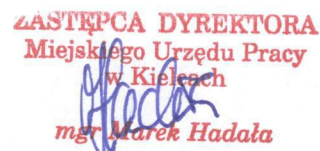 ZASTĘPCA DYREKTORA
Miejskiego Urzędu Pracy
w Kielcach
mgr Marek Hadała